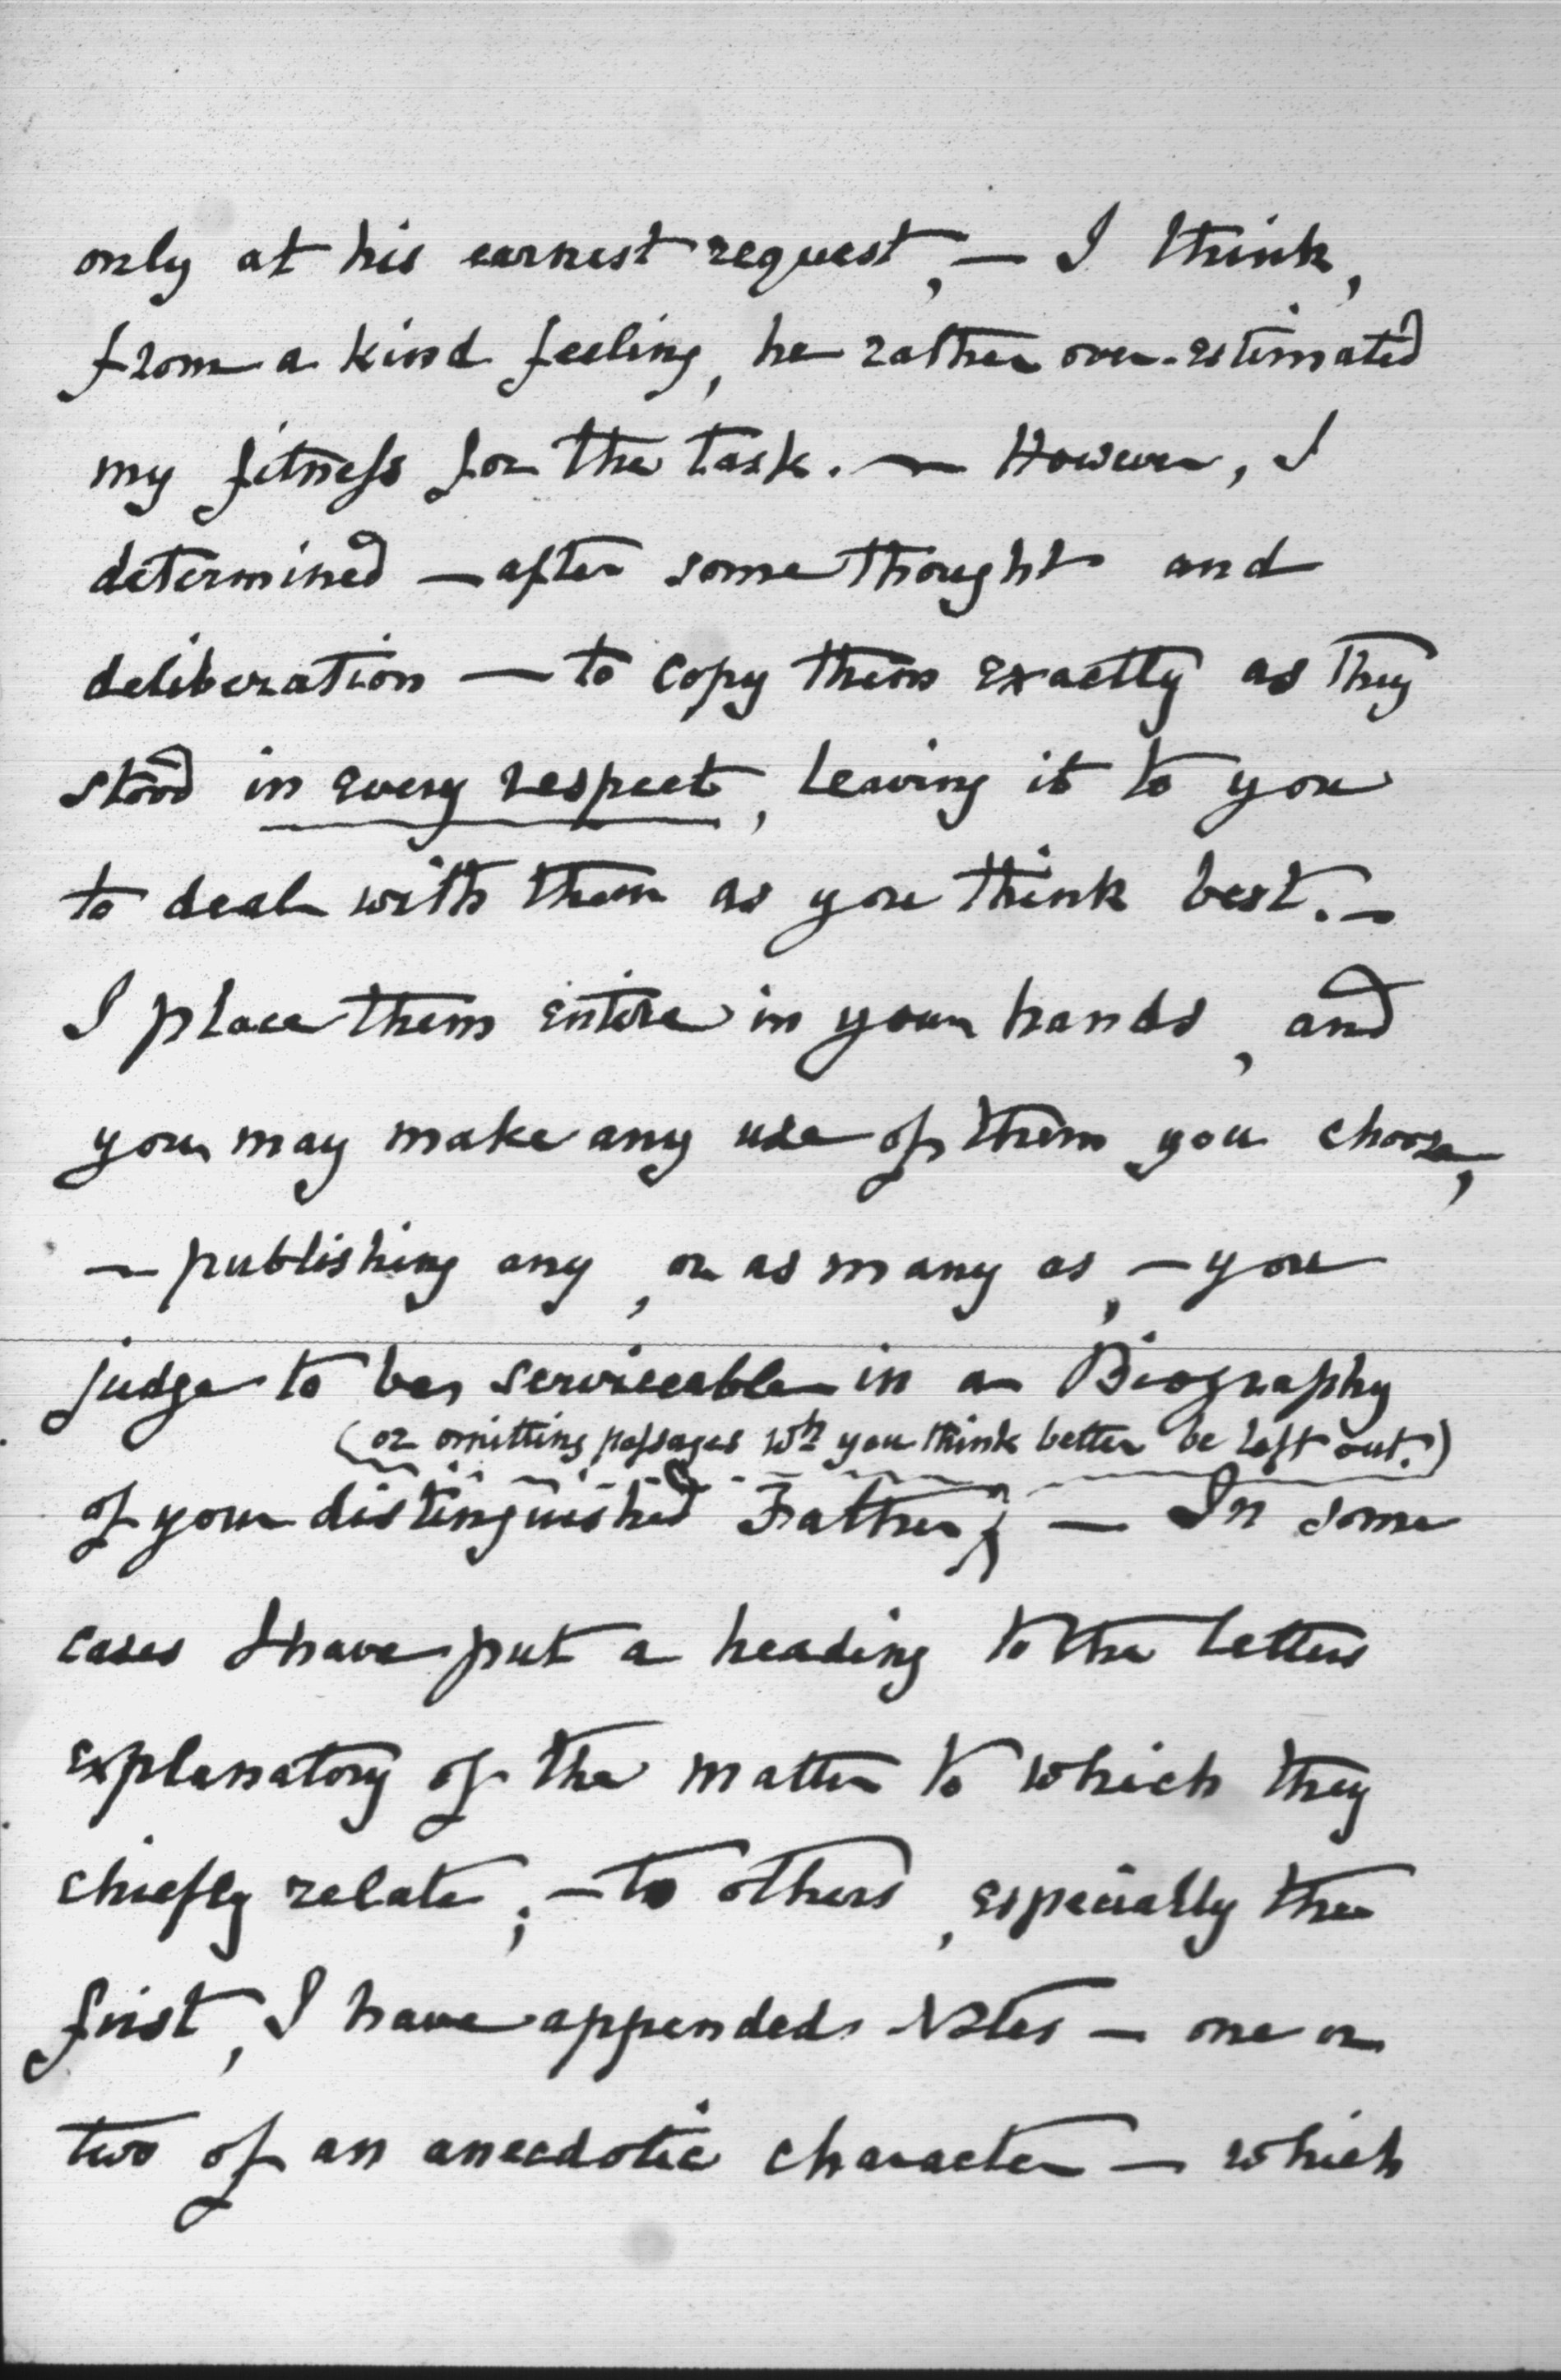 only at his earnest request, — I think,
from a kind feeling, he rather over-estimated
my fitness for the task. — However, I
determined — after some thought and
deliberation — to copy them exactly as they
stood in every respect, leaving it to you
to deal with them as you think best. —
I place them entire in your hands, and
you may make any use of them you choose,
— publishing any, or as many as, — you
judge to be serviceable in a Biography
(or omitting passages wh you think better be left out.)
of your distinguished Father; — In some
cases I have put a heading to the letters
explanatory of the matter to which they
chiefly relate; — to others, especially the
first, I have appended Notes — one or
two of an anecdotic character — which